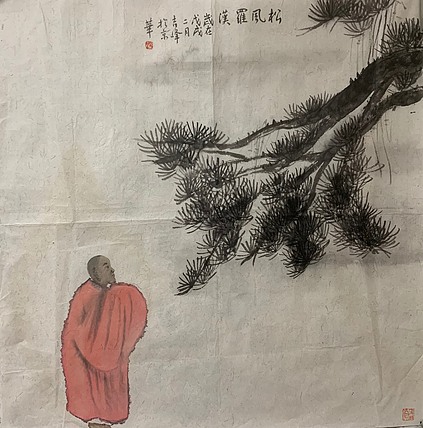 松風羅漢
歲在
戊戌
二月
吉峰
於京
華